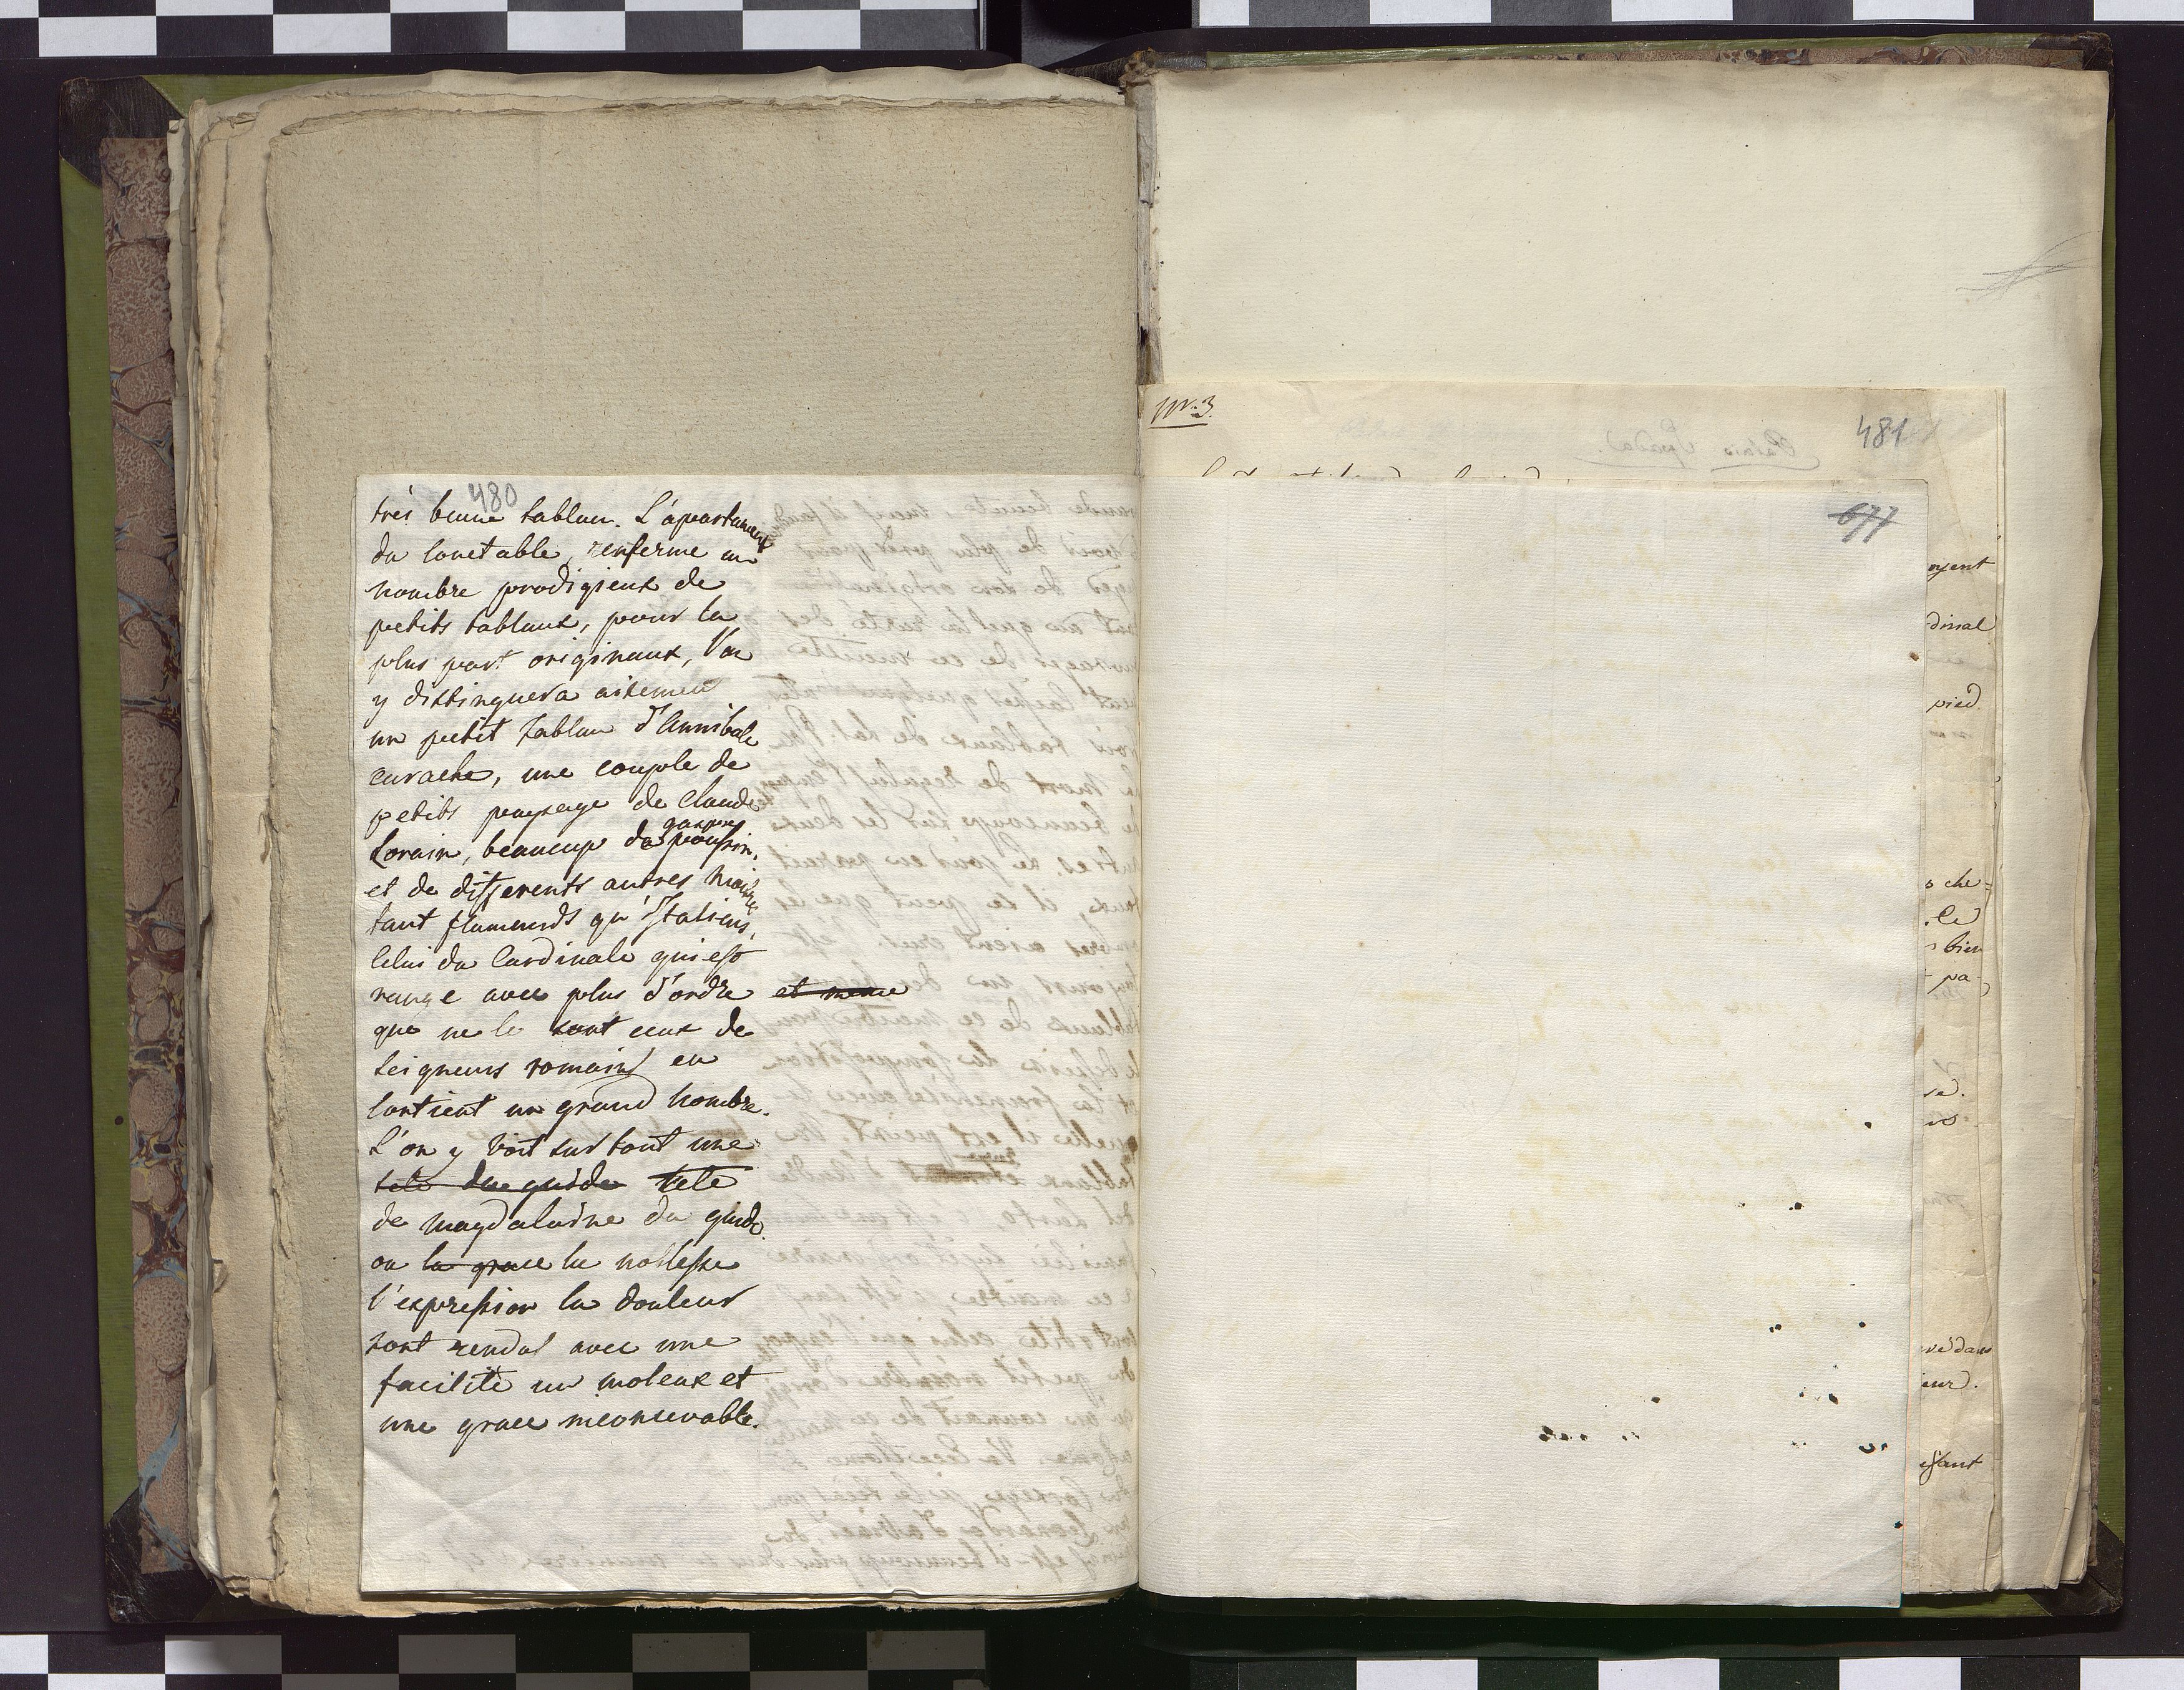 480
très beau tablau. L'apartament
du conetable, renferme un
nombre prodigieux de
petits tablaux, pour la
plus part originaux, l'on
y distinguera aisement
un petit tablau d'Annibale
carache, une couple de
petits paysage de Claude
Lorain, beaucup de gaspres poussin,
et de differents autres maitre
tant flamends qu'Italiens,
celui du Cardinale qui est
rangé avec plus d'ordre et meme
que ne le sont ceux de
seigneurs romains en
contient un grand nombre.
L'on y voit sur tout une
tete du guide tete
de magdalaine du guide
ou la grace la noblesse
l'expression la douleur
sont rendus avec une
facilité un moleux et
une grace inconsevable.
nr. 3.
481
677
oyent
dinal
pied.
che=
le
bien
pa-
sé.
vé dans
eur.
issant